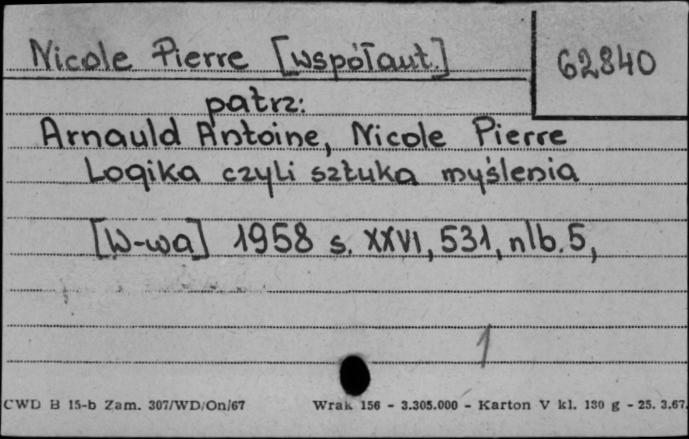 Nicole Pierre [współaut.]
62840
patrz:
Arnauld Antoine, Nicole Pierre
Logika czyli sztuka myślenia
[W-wa] 1958 s. XXVI, 531, nlb. 5,
1
CWD B 15-b Zam. 307/WD/On/67 Wrak 156 - 3.305.000 - Karton V kl. 130 g - 25. 3.67.